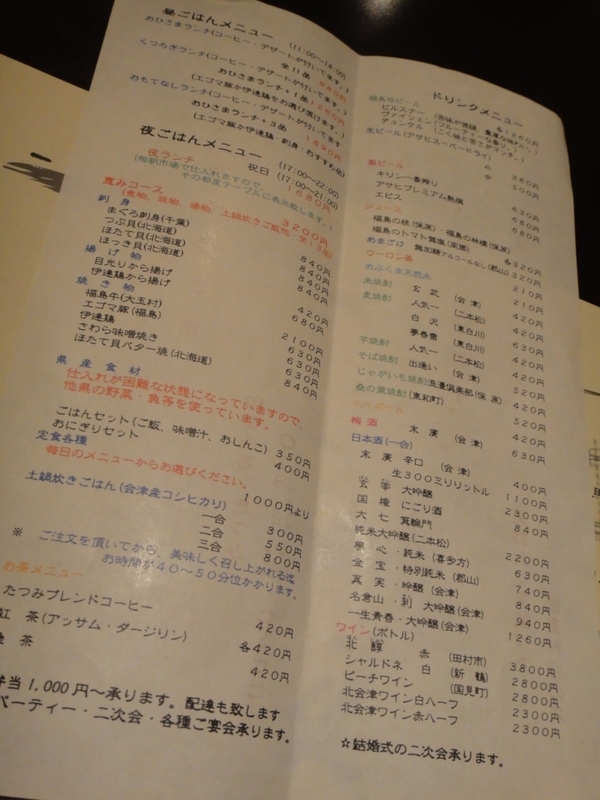 昼ごはんメニュー (11:00〜14:00)
おひさまランチ(コーヒー・デザートが付いてます。)
全11品 980円
くつろぎランチ(コーヒー・デザートが付いてます。)
おひさまランチ+1品 1260円
(エゴマ豚か伊達鶏をお選び頂けます。)
おもてなしランチ(コーヒー・デザートが付いてます
おひさまランチ+3品 1890円
(エゴマ豚か伊達鶏・刺身・おすすめ物)
夜ごはんメニュー (17:00〜22:00)
祝日 (17:00〜21:00)
夜ランチ 1680円
(毎朝市場で仕入れますので、
その都度テーブルに表示致します。)
恵みコース 3200円
(煮物、焼物、揚物、土鍋炊きご飯他 全12品)
刺身
まぐろ刺身(千葉) 840円
つぶ貝(北海道) 840円
ほたて貝(北海道) 840円
ほっき貝(北海道) 840円
揚げ物
目光りから揚げ 420円
伊達鶏から揚げ 680円
焼き物
福島牛(大玉村) 2100円
エゴマ豚(福島) 630円
伊達鶏 630円
さわら味噌焼き 630円
ほたて貝バター焼(北海道) 840円
県産食材
仕入れが困難な状態になっていますので、
他県の野菜・魚等を使っています。
ごはんセット(ご飯、味噌汁、おしんこ) 350円
おにぎりセット 400円
定食各種
毎日のメニューからお選びください。
1000円より
土鍋炊きごはん(会津産コシヒカリ)
一合 300円
二合 550円
三合 800円
※ ご注文を頂いてから、美味しく召し上がれる迄
お時間が40〜50分位かかります。
お茶メニュー
たつみブレンドコーヒー 420円
紅茶(アッサム・ダージリン) 各420円
茶 420円
弁当1,000円〜承ります。配達も致します
パーティー・二次会・各種ご宴会承ります。
ドリンクメニュー
福島地ビール 各1260円
ピルスナー
ヴァイツェン(フルーティーな香り)
デュンケル
生ビール(アサヒスーパードライ)
小 380円
中 500円
瓶ビール
キリン一番搾り 630円
アサヒプレミアム熟撰 680円
エビス 680円
ジュース
福島の桃(保原)・福島の林檎(保原) 各320円
福島のトマト無塩
あまざけ 無加糖アルコールなし(郡山) 320円
ウーロン茶 210円
あぶくま天然水 210円
米焼酎 玄武 (会津) 420円
麦焼酎 人気一 (二本松) 420円
白沢 (東白川) 420円
夢春香 (東白川) 630円
芋焼酎 人気一 (二本松) 420円
そば焼酎 出逢い (会津) 420円
じゃがいも焼酎 浪漫倶楽部(保原) 520円
桑の葉焼酎(東和町) 420円
520円
梅酒 末廣 (会津) 420円
日本酒(一合) 630円
末廣 辛口 (会津) 400円
生300ミリリットル 1100円
玄宰 大吟醸 2300円
国権 にごり酒 840円
大七 箕輪門
純米大吟醸(二本松) 2200円
夢心・純米(喜多方) 630円
金宝・特別純米(郡山) 740円
真実・吟醸(会津) 840円
名倉山・大吟醸(会津) 940円
一生青春・大吟醸(会津) 1260円
ワイン(ボトル)
北醇 赤 (田村市) 3800円
シャルドネ 白 (新鶴) 2800円
ピーチワイン (国見町) 2800円
北会津ワイン白ハーフ 2300円
北会津ワイン赤ハーフ 2300円
☆結婚式の二次会承ります。